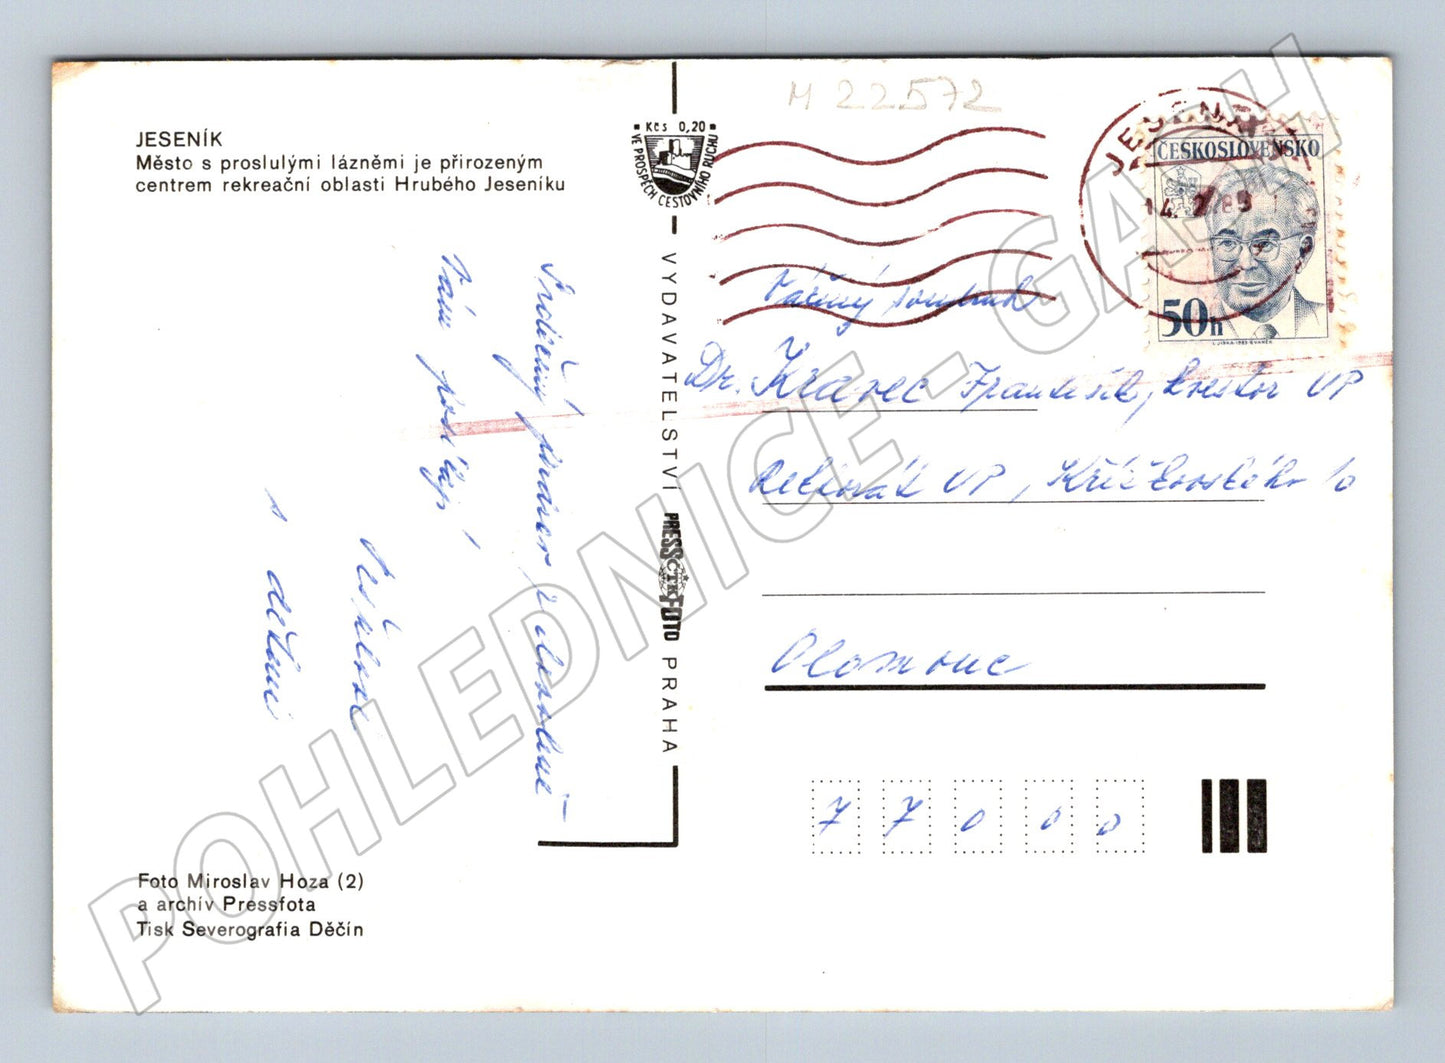 JESENÍK
Město s proslulými lázněmi je přirozeným
centrem rekreační oblasti Hrubého Jeseníku
Srdečný pozdrav z dovolené
Vám posílají
s dětmi
Foto Miroslav Hoza (2)
a archív Pressfota
Tisk Severografia Děčín
Kčs 0,20
VE PROSPĚCH CESTOVNÍHO RUCHU
VYDAVATELSTVÍ PRESSFOTO PRAHA
ČTK
M 22572
JESENÍK
14. 7. 89
ČESKOSLOVENSKO
50h
Vážený soudruh
Dr. Kravec František, kvestor UP
Rektorát UP, Křížkovského 10
Olomouc
77000
POHLEDNICE - GASH